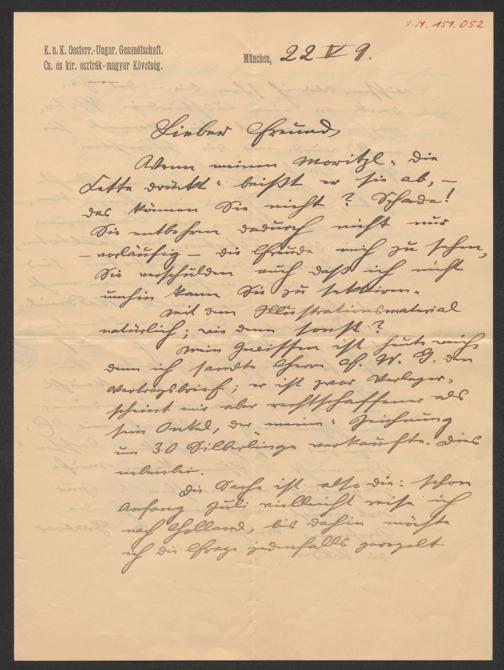 I.N. 151.052
K. u. K. Oesterr.-Ungar. Gesandtschaft.
Cs. és kir. osztrák-magyar Követség.
München, 22 V 9.
Lieber Freund,
Wenn meinen Moritzl die
Kette drückt - beißt er sie ab, -
das können Sie nicht? Schade!
Sie entbehren dadurch nicht nur
- vorläufig - die Freude mich zu sehen,
Sie verschulden auch daß ich nicht
umhin kann Sie zu
Mit dem Illustrationsmaterial
natürlich; wie denn sonst?
Mein Gewissen ist heute rein,
denn ich sandte Herrn G. den
Vertragsbrief; er ist zwar Verleger,
scheint mir aber rechtschaffener als
sein Onkel, der meine Zeichnung
um 30 Silberlinge verkaufte. Dies
nebenbei.
Die Sache ist also die: schon
Anfang Juli vielleicht reise ich
nach Holland, bis dahin möchte
ich die Frage jedenfalls geregelt